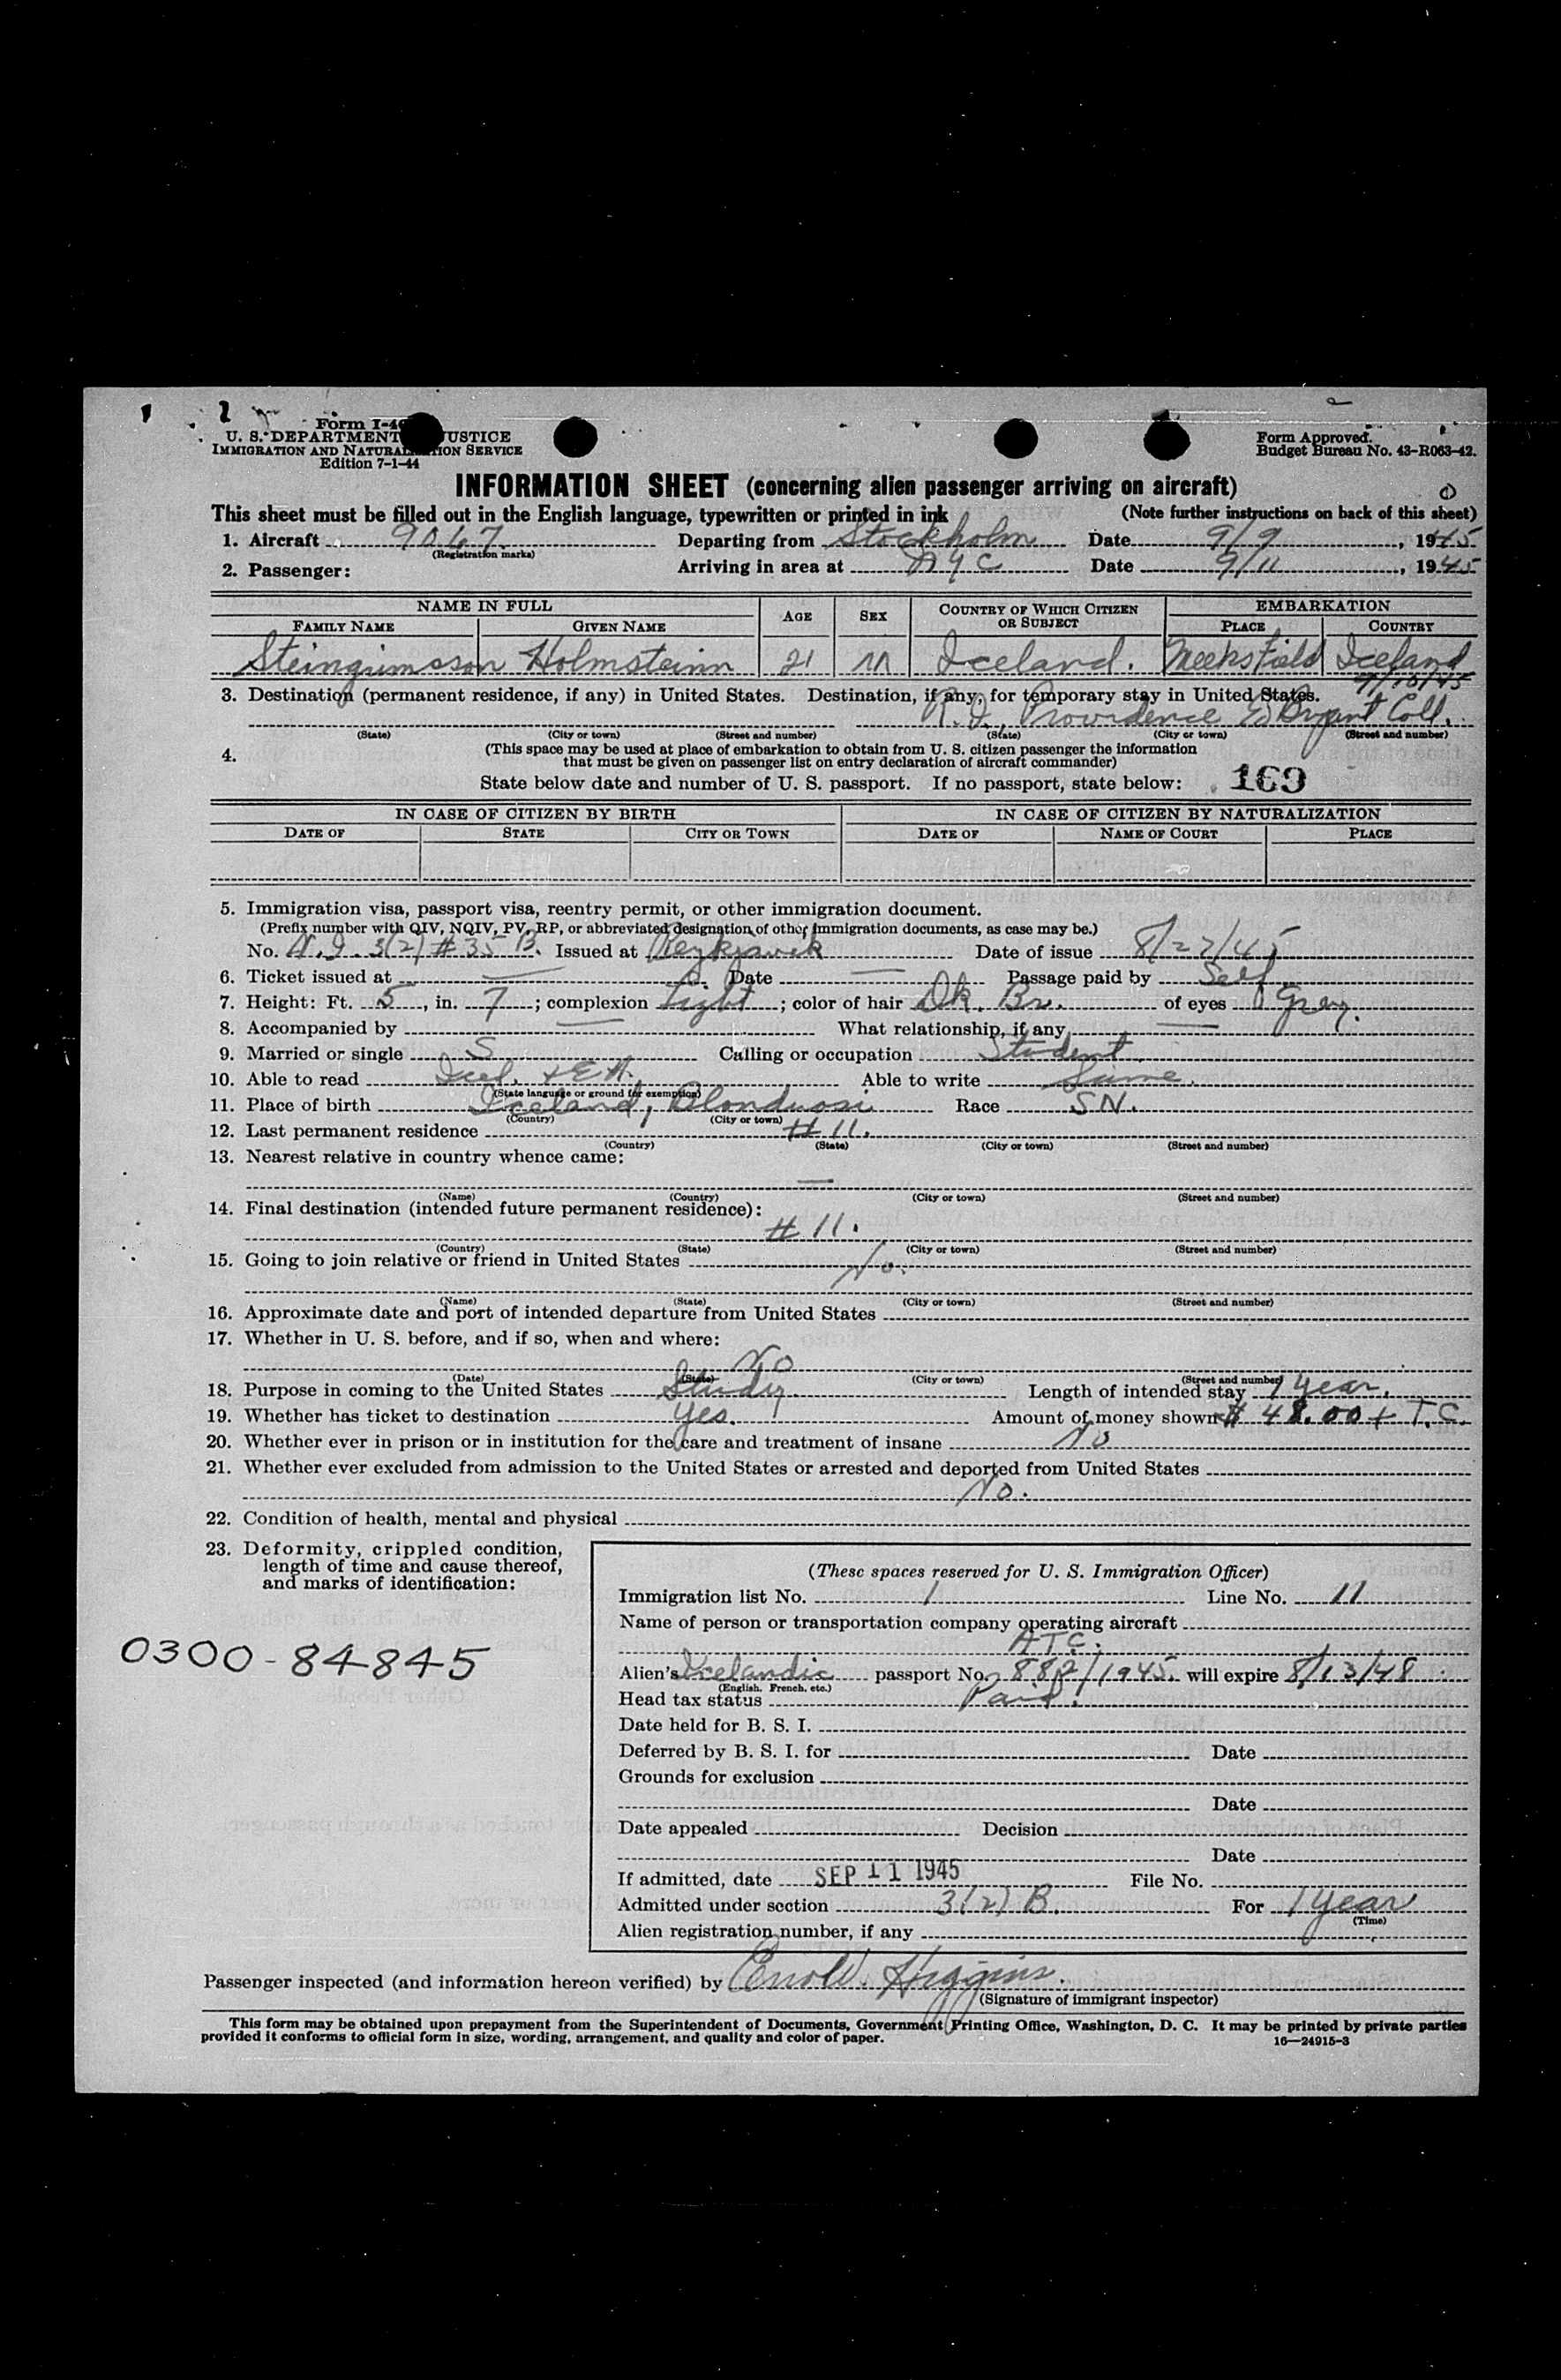 Form I-4
U. S. DEPARTMENT USTICE
IMMIGRATION AND NATURALIZATION SERVICE
Edition 7-1-44
Form Approved.
Budget Bureau No. 43-R063-42.
INFORMATION SHEET (concerning alien passenger arriving on aircraft)
This sheet must be filled out in the English language, typewritten or printed in ink (Note further instructions on back of this sheet)
1. Aircraft 9067 Departing from Stockholm Date 9/9, 1945
(Registration marks)
2. Passenger: Arriving in area at NYC Date 9/11, 1945
NAME IN FULL AGE SEX COUNTRY OF WHICH CITIZEN OR SUBJECT EMBARKATION
FAMILY NAME GIVEN NAME PLACE COUNTRY
Steingrimsson Holmsteinn 21 M Iceland. Meeks Field Iceland
9/10/45
3. Destination (permanent residence, if any) in United States. Destination, if any, for temporary stay in United States.
R.I., Providence Bryant Coll.
(State) (City or town) (Street and number) (State) (City or town) (Street and number)
4. (This space may be used at place of embarkation to obtain from U. S. citizen passenger the information
that must be given on passenger list on entry declaration of aircraft commander)
State below date and number of U. S. passport. If no passport, state below: 169
IN CASE OF CITIZEN BY BIRTH IN CASE OF CITIZEN BY NATURALIZATION
DATE OF STATE CITY OR TOWN DATE OF NAME OF COURT PLACE
5. Immigration visa, passport visa, reentry permit, or other immigration document.
(Prefix number with QIV, NQIV, PV, RP, or abbreviated designation of other immigration documents, as case may be.)
No. N.I. 3(2) #35 B. Issued at Reykjavik Date of issue 8/27/45
6. Ticket issued at — Date — Passage paid by Self
7. Height: Ft. 5, in. 7; complexion Light; color of hair Dk. Br. of eyes Grey.
8. Accompanied by — What relationship, if any —
9. Married or single S Calling or occupation Student
10. Able to read Icel. + En. Able to write Same.
(State language or ground for exemption)
11. Place of birth Iceland, Blonduosi Race SN.
(Country) (City or town)
12. Last permanent residence #11.
(Country) (State) (City or town) (Street and number)
13. Nearest relative in country whence came:
—
(Name) (Country) (City or town) (Street and number)
14. Final destination (intended future permanent residence):
#11.
(Country) (State) (City or town) (Street and number)
15. Going to join relative or friend in United States No.
(Name) (State) (City or town) (Street and number)
16. Approximate date and port of intended departure from United States
17. Whether in U. S. before, and if so, when and where:
No
(Date) (State) (City or town) (Street and number)
18. Purpose in coming to the United States Study. Length of intended stay 1 year.
19. Whether has ticket to destination Yes. Amount of money shown $ 48.00 + T.C.
20. Whether ever in prison or in institution for the care and treatment of insane No
21. Whether ever excluded from admission to the United States or arrested and deported from United States
No.
22. Condition of health, mental and physical
23. Deformity, crippled condition,
length of time and cause thereof,
and marks of identification:
0300-84845
(These spaces reserved for U. S. Immigration Officer)
Immigration list No. 1 Line No. 11
Name of person or transportation company operating aircraft
A.T.C.
Alien's Icelandic passport No. 882/1945. will expire 8/13/48
(English, French, etc.)
Head tax status Paid.
Date held for B. S. I.
Deferred by B. S. I. for Date
Grounds for exclusion
Date
Date appealed Decision
Date
If admitted, date SEP 11 1945 File No.
Admitted under section 3(2) B. For 1 year
(Time)
Alien registration number, if any
Passenger inspected (and information hereon verified) by Higgins.
(Signature of immigrant inspector)
This form may be obtained upon prepayment from the Superintendent of Documents, Government Printing Office, Washington, D. C. It may be printed by private parties
provided it conforms to official form in size, wording, arrangement, and quality and color of paper. 16—24915-3